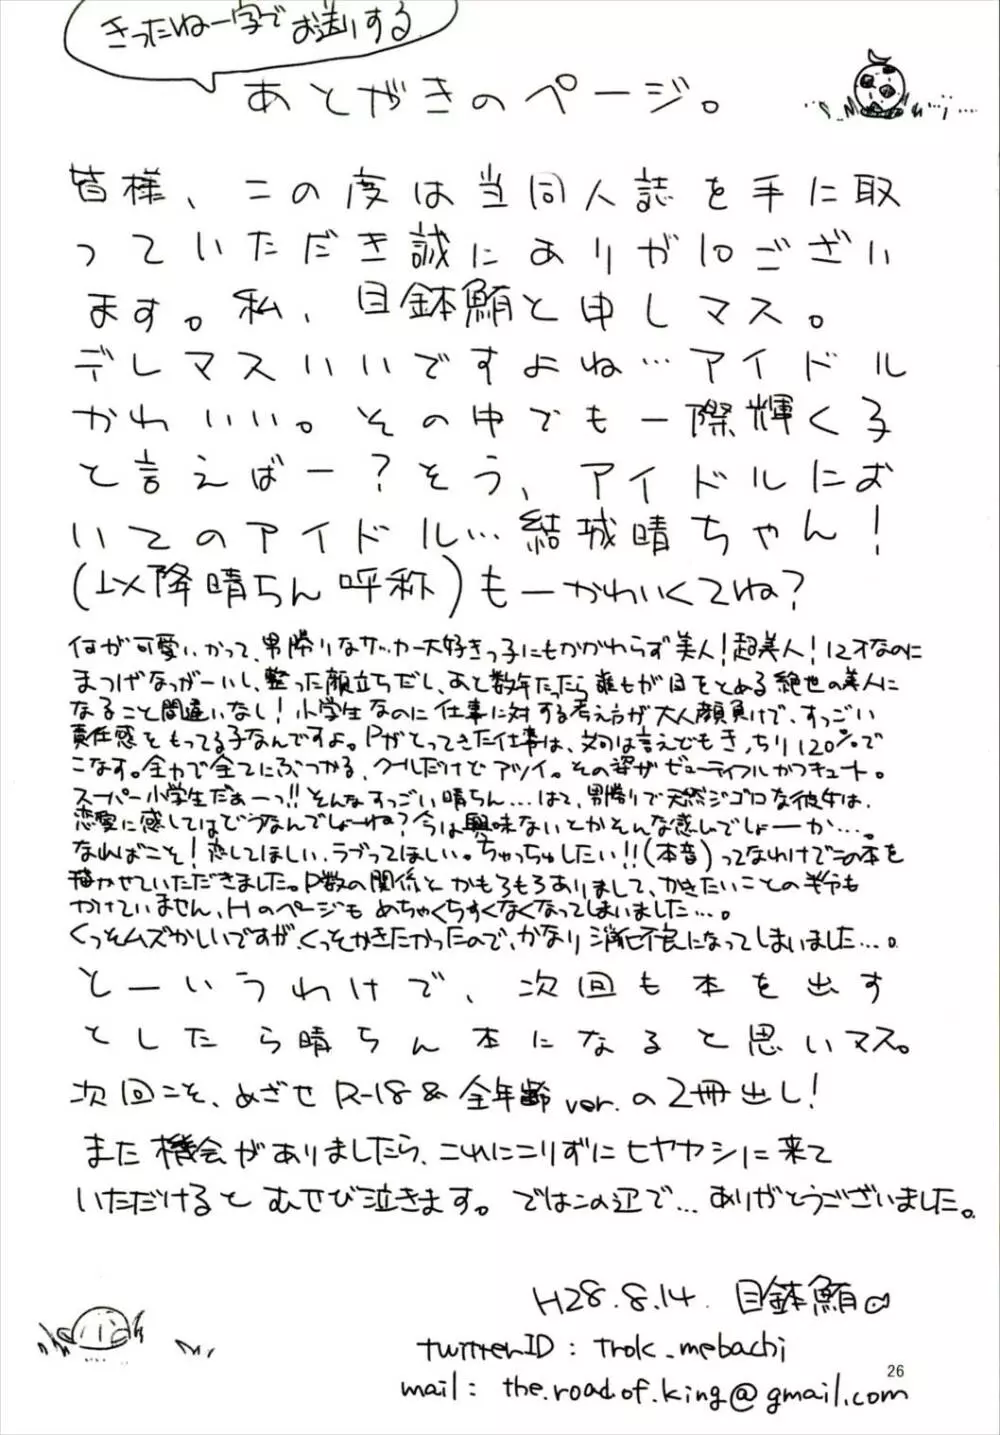 きったねー字でお送りする
あとがきのページ。
皆様、この度は当同人誌を手に取
っていただき誠にありがとございい
ます。私、目鉢鮪と申しマス。
デレマスいいですよね…アイドル
かわいい。その中でも一際輝く子
と言えばー?そう、アイドルにお
いてのアイドル…結城晴ちゃん!
(以降晴ちん呼称)もーかわいくてね?
何が可愛いかって、男勝りなサッカー大好きっ子にもかかわらず美人!超美人!12才なのに
まつげなっがーいし、整った顔立ちだし、あと数年たったら誰もが目をとめる絶世の美人に
なること間違いなし!小学生なのに仕事に対する考え方が大人顔負けで、すっごい
責任感をもってる子なんですよ。Pがとってきた仕事は、文句は言えどもきっちり120%で
こなす。全力で全てにぶつかる、クールだけどアツイ。その姿がビューティフルかつキュート。
スーパー小学生だぁーっ!!そんなすっごい晴ちん…はて、男勝りで天然ジゴロな彼女は、
恋愛に感してはどうなんでしょーね?今は興味ないとかそんな感じでしょーか…。
なればこそ!恋してほしい、ラブってほしい。ちゅっちゅしたい!!(本音)ってなわけでこの本を
描かせていただきました。P数の関係とかもろもろありまして、かきたいことの半分も
かけていません、Hのページもめちゃくちゃすくなくなってしまいました…。
くっそムズかしいですが、くっそかきたかったので、かなり消化不良になってしまいました…。
とーいうわけで、次回も本を出す
としたら晴ちん本になると思いマス。
次回こそ、めざせR-18&全年齢ver.の2冊出し!
また機会がありましたら、これにこりずにヒヤカシに来て
いただけるとむせび泣きます。ではこの辺で…ありがとうございました。
H28.8.14. 目鉢鮪
twitterID: Trok_mebachi
mail: the.road.of.king@gmail.com
26